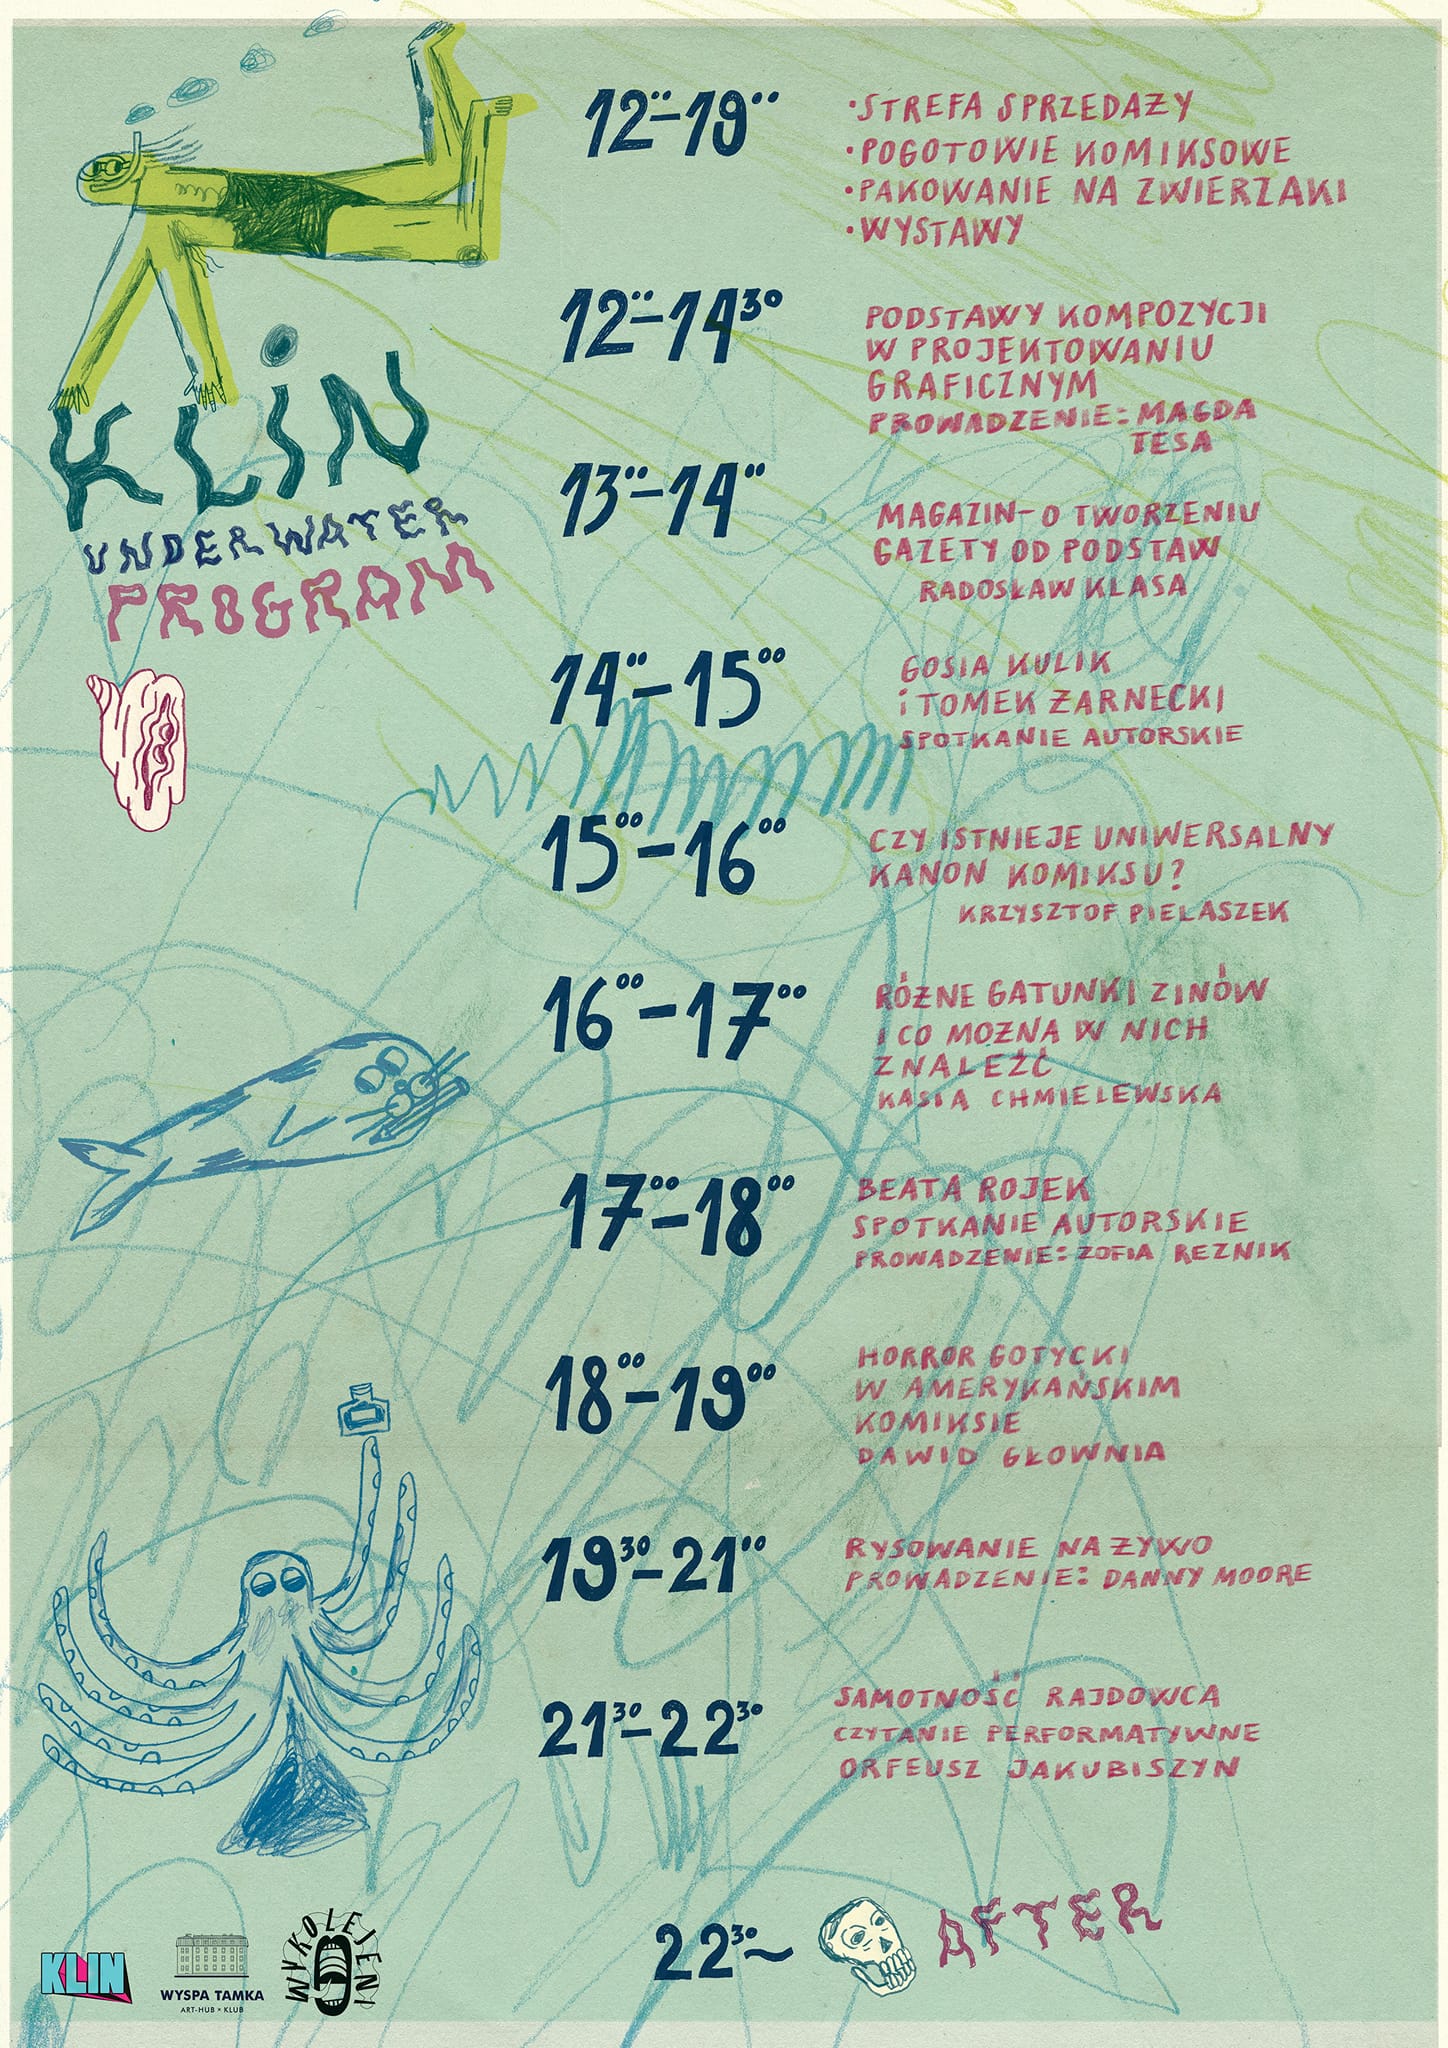 KLIN
UNDERWATER
PROGRAM
12⁰⁰-19⁰⁰
•STREFA SPRZEDAŻY
•POGOTOWIE KOMIKSOWE
•PAKOWANIE NA ZWIERZAKI
•WYSTAWY
12⁰⁰-14³⁰
PODSTAWY KOMPOZYCJI
W PROJEKTOWANIU
GRAFICZNYM
PROWADZENIE: MAGDA
TESA
13⁰⁰-14⁰⁰
MAGAZIN-O TWORZENIU
GAZETY OD PODSTAW
RADOSŁAW KLASA
14⁰⁰-15⁰⁰
GOSIA KULIK
i TOMEK ŻARNECKI
SPOTKANIE AUTORSKIE
15⁰⁰-16⁰⁰
CZY ISTNIEJE UNIWERSALNY
KANON KOMIKSU?
KRZYSZTOF PIELASZEK
16⁰⁰-17⁰⁰
RÓŻNE GATUNKI ZINÓW
I CO MOŻNA W NICH
ZNALEŹĆ
KASIA CHMIELEWSKA
17⁰⁰-18⁰⁰
BEATA ROJEK
SPOTKANIE AUTORSKIE
PROWADZENIE: ZOFIA REZNIK
18⁰⁰-19⁰⁰
HORROR GOTYCKI
W AMERYKAŃSKIM
KOMIKSIE
DAWID GŁOWNIA
19³⁰-21⁰⁰
RYSOWANIE NA ŻYWO
PROWADZENIE: DANNY MOORE
21³⁰-22³⁰
SAMOTNOŚĆ RAJDOWCA
CZYTANIE PERFORMATYWNE
ORFEUSZ JAKUBISZYN
22³⁰~
AFTER
KLIN
WYSPA TAMKA
ART-HUB × KLUB
WYKOLEJENI